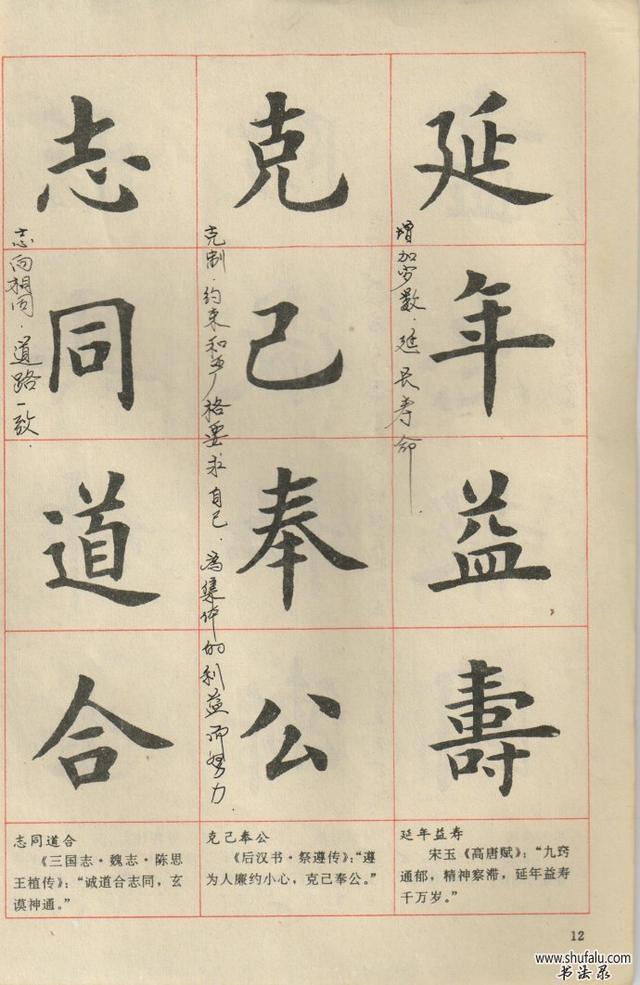 延年益壽
增加岁数.延长寿命
克己奉公
克制.约束和严格要求自己.为集体的利益而努力
志同道合
志向相同.道路一致.
延年益寿
宋玉《高唐赋》：“九窍
通郁，精神察滞，延年益寿
千万岁。”
克己奉公
《后汉书·祭遵传》：“遵
为人廉约小心，克己奉公。”
志同道合
《三国志·魏志·陈思
王植传》：“诚道合志同，玄
谟神通。”
12
www.shufalu.com
书法录